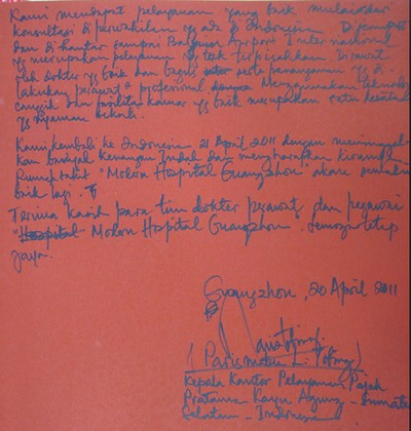 Kami mendapat pelayanan yang baik mulai dari
konsultasi di perwakilan yg ada di Indonesia. Dijemput
dan di hantar sampai Airport Internasional
yg merupakan pelayanan yg tak terpisahkan. Dirawat
oleh dokter yg baik dan bagus serta penanganan yg di
lakukan perawat² profesional. Menggunakan teknologi
canggih dan fasilitas kamar yg baik merupakan satu
yg nyaman
Kami kembali ke Indonesia 21 April 2011 dengan meninggal
kan banyak kenangan Indah dan mengharapkan kiranya
Rumah sakit "Modern Hospital Guangzhou" akan semakin
baik lagi.
Terima kasih para tim dokter perawat dan pegawai
Modern Hospital Guangzhou. Semoga tetap
jaya.
Guangzhou, 20 April 2011
Kepala Kantor Pelayanan Pajak
Pratama Kayu Agung - Sumatra
Selatan - Indonesia